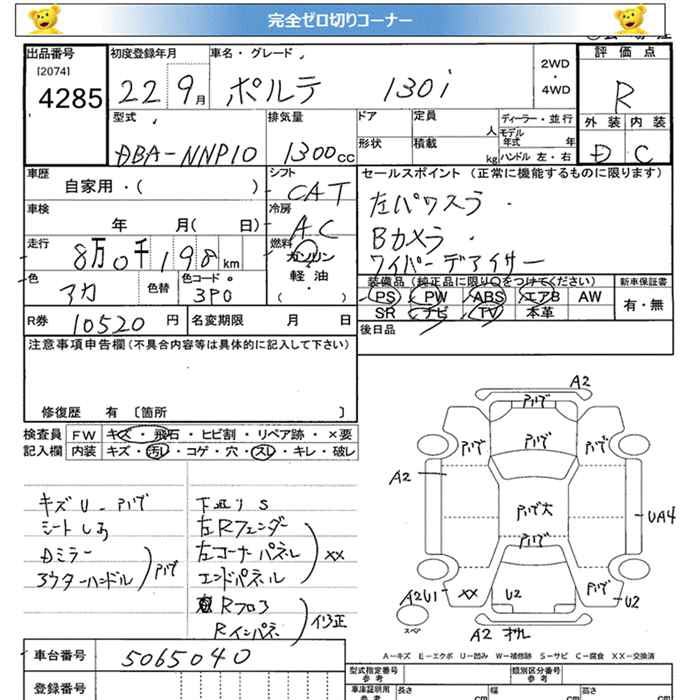 完全ゼロ切りコーナー
出品番号
[2074]
4285
初度登録年月
22 9月
車名・グレード
ポルテ 130i
2WD
・
4WD
評価点
R
型式
DBA-NNP10
排気量
1300cc
ドア
形状
定員
人
積載
kg
ディーラー・並行
モデル年式 年
ハンドル 左・右
外装 内装
D C
車歴
自家用・( )
シフト
CAT
車検
年 月( 日)
冷房
AC
走行
8万0千198km
燃料
ガソリン
軽油
( )
色
アカ
色替
色コード
3P0
セールスポイント (正常に機能するものに限ります)
左パワスラ
Bカメラ
ワイパーデアイサー
装備品(純正品に限り○をつけてください)
PS PW ABS エアB AW
SR ナビ TV 本革
新車保証書
有・無
R券 10520円
名変期限 月 日
後日品
注意事項申告欄(不具合内容等は具体的に記入して下さい)
修復歴 有 〔箇所 〕
検査員
記入欄
FW キズ・飛石・ヒビ割・リペア跡・×要
内装 キズ・汚れ・コゲ・穴・スレ・キレ・破レ
キズU
シートしみ
Dミラー
アウターハンドル
下廻りS
左Rフェンダー
左コーナーパネル
エンドパネル
XX
Rフロア
Rインパネ
修正
A2
A2
UA4
A2U1
XX
U2
U2
A2
スペア
A-キズ E-エクボ U-凹み W-補修跡 S-サビ C-腐食 XX-交換済
車台番号
5065040
登録番号
型式指定番号
参考
類別区分番号
参考
車庫証明用
参考
長さ
cm
幅
cm
高さ
cm